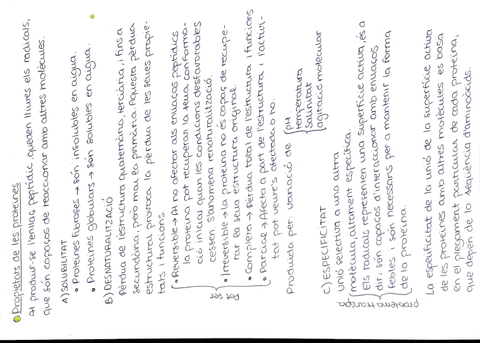 Propietats de les proteïnes
Al produir-se l'enllaç peptídic, queden lliures els radicals,
que són capaços de reaccionar amb altres molècules.
A) SOLUBILITAT
• Proteïnes fibroses → són insolubles en aigua.
• Proteïnes globulars → són solubles en aigua.
B) DESNATURALITZACIÓ
Pèrdua de l'estructura quaternària, terciària, i fins a
secundària, però mai la primària. Aquesta pèrdua
estructural provoca la pèrdua de les seues propie-
tats i funcions.
Pot ser
• Reversible → Al no afectar als enllaços peptídics
la proteïna pot recuperar la seua conforma-
ció inicial quan les condicions desfavorables
cessen. S'anomena renaturalització.
• Irreversible → la proteïna no és capaç de recupe-
rar la seua estructura original.
• Completa → Pèrdua total de l'estructura i funcions
• Parcial → Afecta a part de l'estructura i l'activi-
tat pot veure's afectada o no.
Produïda per variació de
pH
temperatura
Salinitat
agitació molecular
C) ESPECIFICITAT
unió selectiva a una altra
molècula, altament específica.
Els radicals representen una superfície activa, és a
dir, són capaços d'interaccionar amb enllaços
febles i són necessaris per a mantenir la forma
de la proteïna.
La especificitat de la unió de la superfície activa
de les proteïnes amb altres molècules es basa
en el plegament particular de cada proteïna,
que depèn de la seqüència d'aminoàcids.